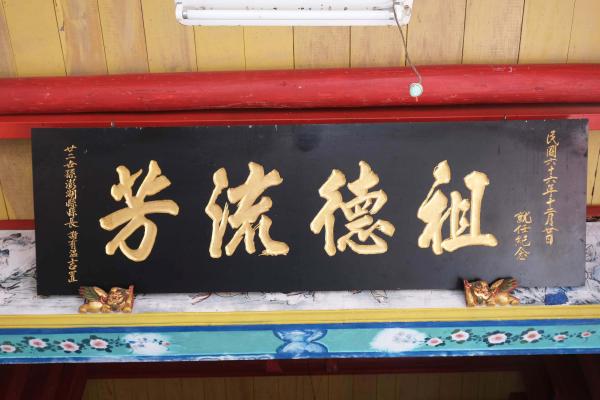 民國六十六年十二月廿日
就任紀念
祖德流芳
廿二世孫澎湖縣縣長 謝有溫